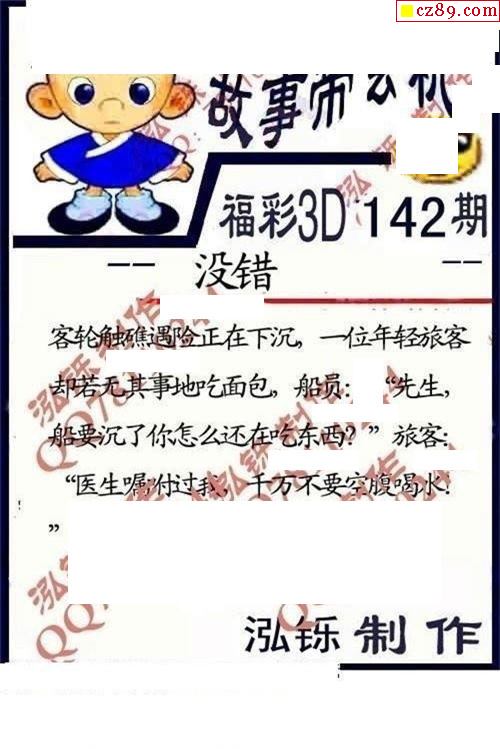 cz89.com
故事师玄机
福彩3D 142期
没错
客轮触礁遇险正在下沉，一位年轻旅客
却若无其事地吃面包，船员：“先生，
船要沉了你怎么还在吃东西？”旅客：
“医生嘱咐过我，千万不要空腹喝水！
”
泓铄制作